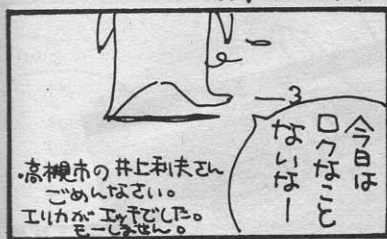 今日は
ロクなこと
ないなー
高槻市の井上利夫さん
ごめんなさい。
エリカがエッチでした。
もーしません。